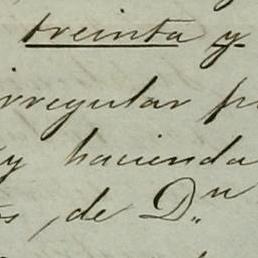 treinta y
irregular
y hacienda
, de Dn